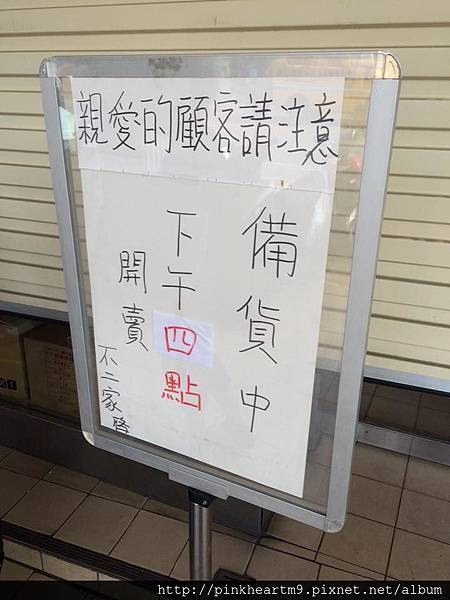 親愛的顧客請注意
備貨中
下午四點
開賣
不二家啓
http://pinkheartm9.pixnet.net/album